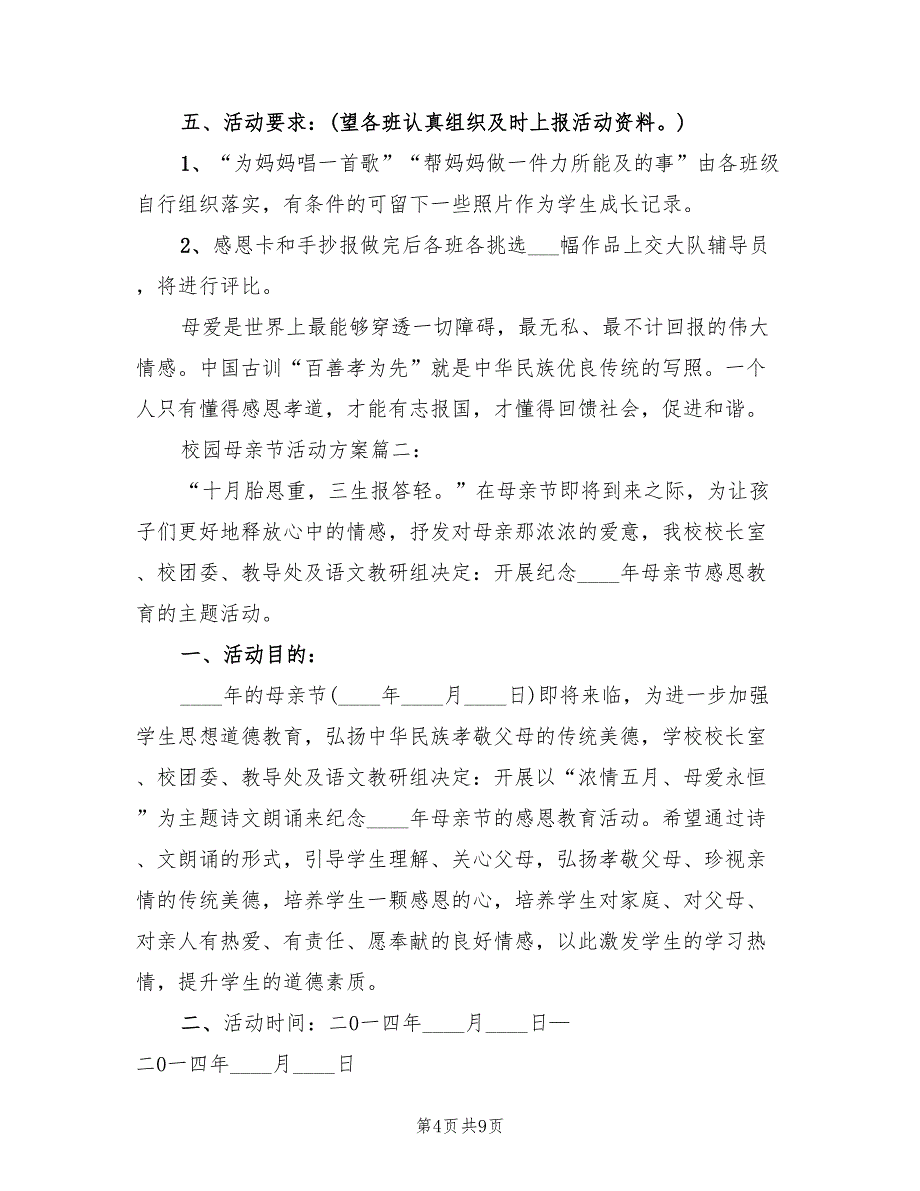 五、活动要求：(望各班认真组织及时上报活动资料。)
1、“为妈妈唱一首歌”“帮妈妈做一件力所能及的事”由各班级
自行组织落实，有条件的可留下一些照片作为学生成长记录。
2、感恩卡和手抄报做完后各班各挑选___幅作品上交大队辅导员
，将进行评比。
母爱是世界上最能够穿透一切障碍，最无私、最不计回报的伟大
情感。中国古训“百善孝为先”就是中华民族优良传统的写照。一个
人只有懂得感恩孝道，才能有志报国，才懂得回馈社会，促进和谐。
校园母亲节活动方案篇二：
“十月胎恩重，三生报答轻。”在母亲节即将到来之际，为让孩
子们更好地释放心中的情感，抒发对母亲那浓浓的爱意，我校校长室
、校团委、教导处及语文教研组决定：开展纪念____年母亲节感恩教
育的主题活动。
一、活动目的：
____年的母亲节(____年____月____日)即将来临，为进一步加强
学生思想道德教育，弘扬中华民族孝敬父母的传统美德，学校校长室
、校团委、教导处及语文教研组决定：开展以“浓情五月、母爱永恒
”为主题诗文朗诵来纪念____年母亲节的感恩教育活动。希望通过诗
、文朗诵的形式，引导学生理解、关心父母，弘扬孝敬父母、珍视亲
情的传统美德，培养学生一颗感恩的心，培养学生对家庭、对父母、
对亲人有热爱、有责任、愿奉献的良好情感，以此激发学生的学习热
情，提升学生的道德素质。
二、活动时间：二0一四年____月____日—
二0一四年____月____日
第4页共9页